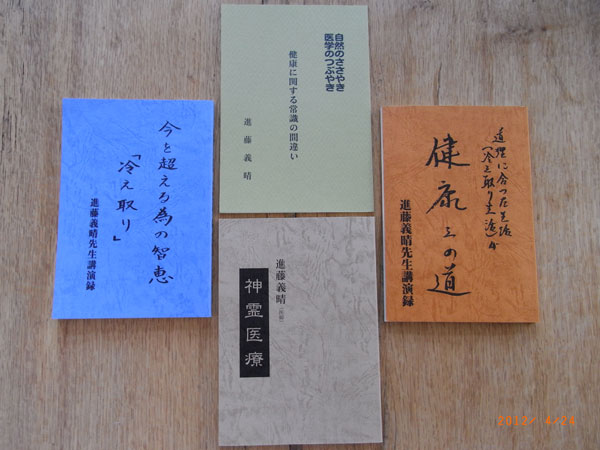 今を超える為の智恵
「冷え取り」
進藤義晴先生講演録
自然のささやき
医学のつぶやき
健康に関する常識の間違い
進藤義晴
進藤義晴
神霊医療
道理に合った生活
(冷え取り生活)が
健康への道
進藤義晴先生講演録
2012/ 4/24